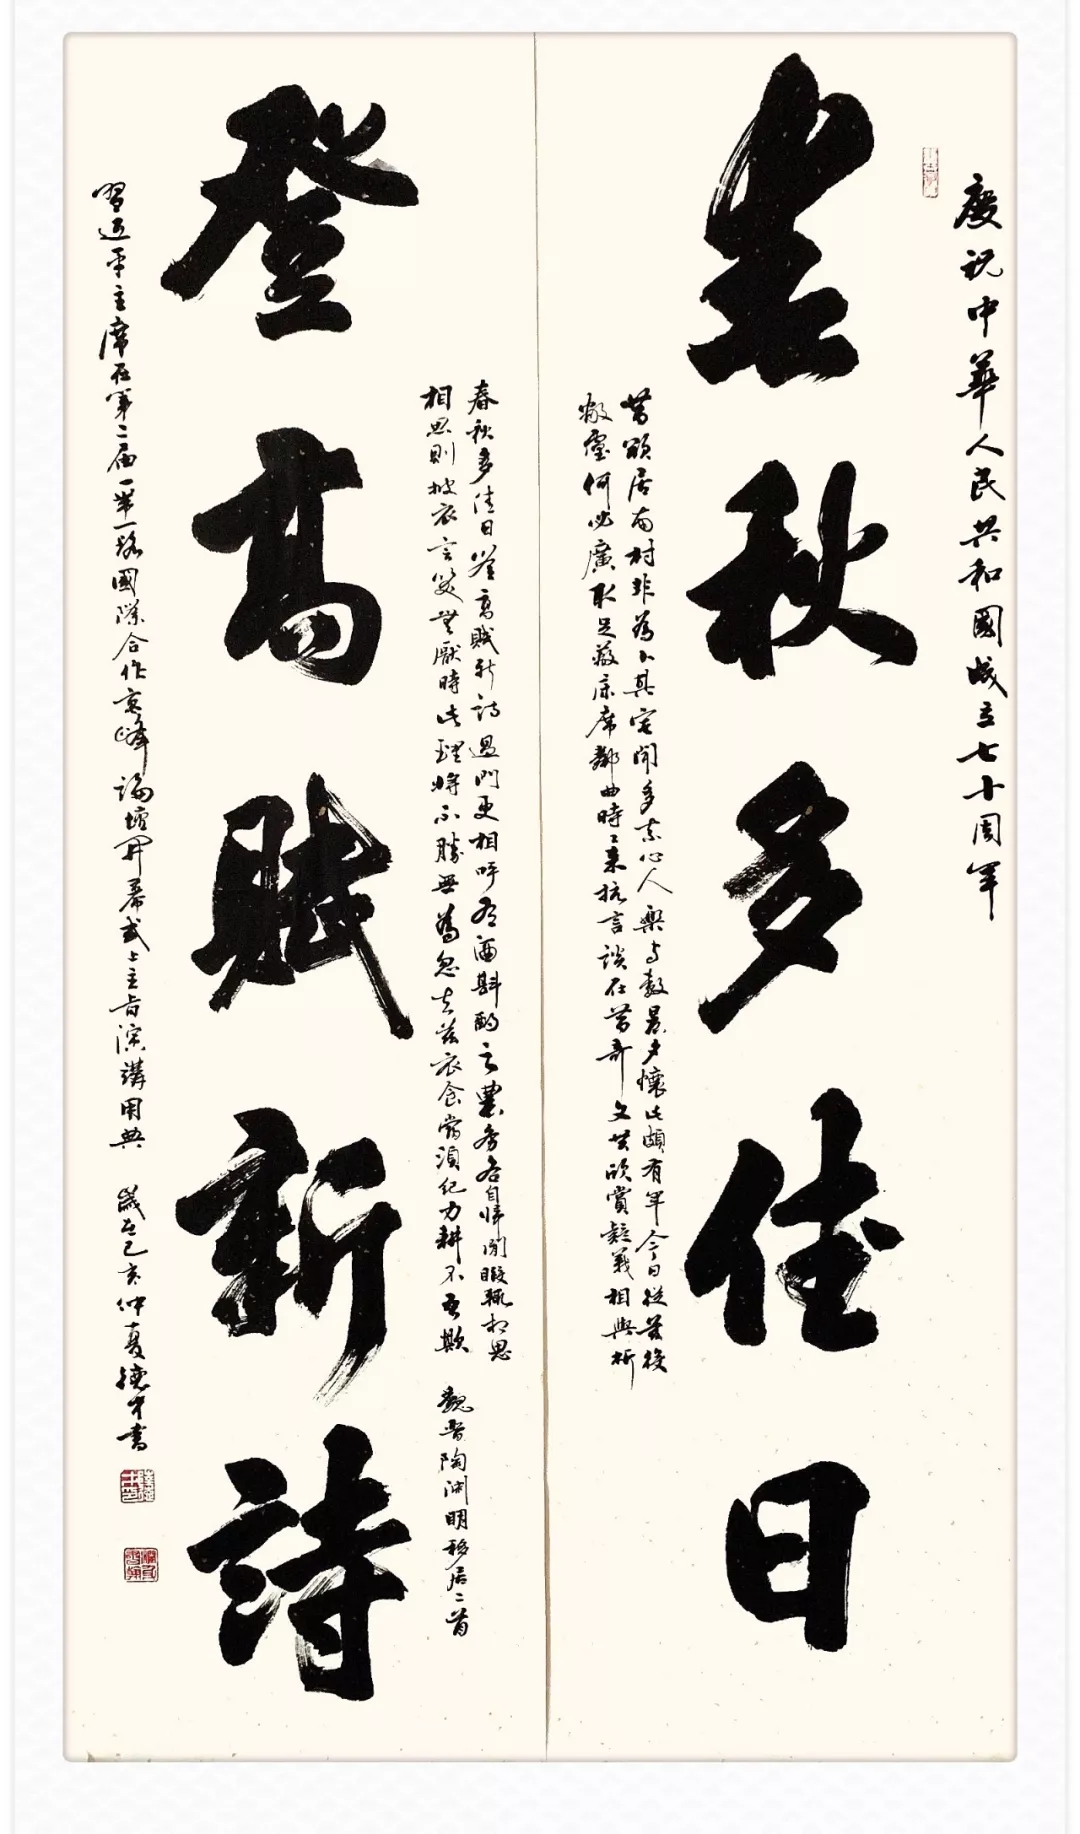 慶祝中華人民共和國成立七十周年
春秋多佳日
昔欲居南村非為卜其宅聞多素心人樂與數晨夕懷此頗有年今日從茲役
敝廬何必廣取足蔽床席鄰曲時〻來抗言談在昔奇文共欣賞疑義相與析
登高賦新詩
春秋多佳日登高賦新詩過門更相呼有酒斟酌之農務各自歸閒暇輒相思
相思則披衣言笑無厭時此理將不勝無為忽去茲衣食當須紀力耕不吾欺
魏晉陶淵明移居二首
習近平主席在第二届一帶一路國際合作高峰論壇開幕式上主旨演講用典
歲在己亥仲夏德才書